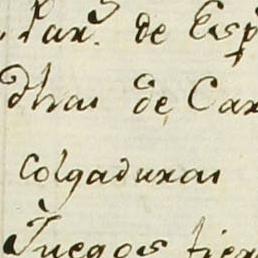 Par.ˢ de Esp
Dhas de Car
Colgaduras
Juegos